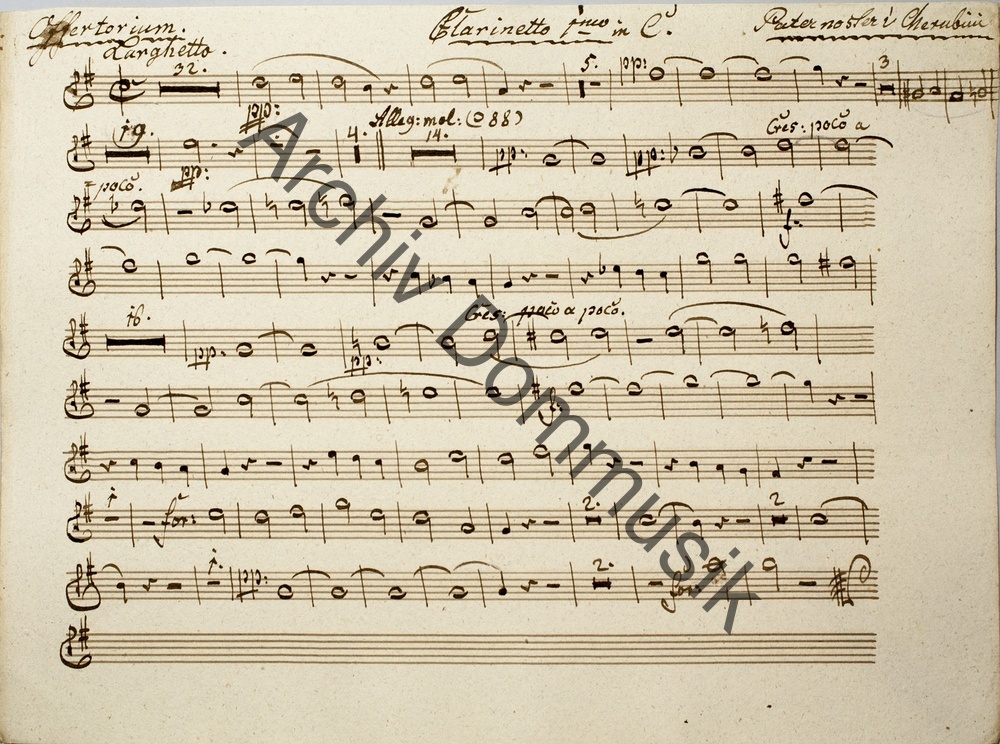 Offertorium. Clarinetto 1mo in C. Pater noster v Cherubini
Larghetto.
32. 5. pp: 3
pp:
19. 4. Alleg: mol: (88) 14. pp: pp: Cres: poco a
pp:
poco. f.
16. pp: pp: Cres: poco a poco.
1 for: 2. 2
1. pp: 2. for:
Archiv Dommusik